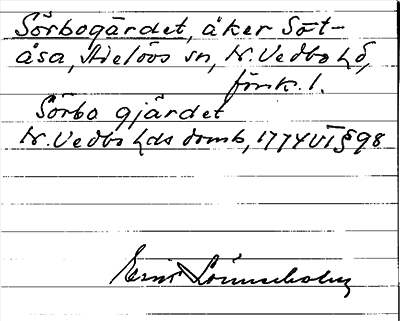 Sörbogärdet, åker Söt-
åsa, Adelövs sn, N. Vedbo hd,
försk. 1.
Sörbo gjärdet
N. Vedbo hds domb, 1774 VI § 98
Ernst